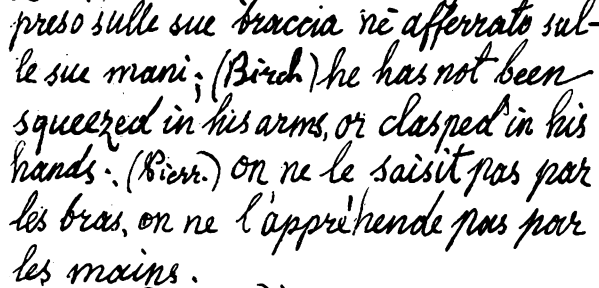 preso sulle sue braccia nè afferrato sul-
le sue mani; (Birch) he has not been
squeezed in his arms, or clasped in his
hands; (Pierr.) on ne le saisit pas par
les bras, on ne l'appréhende pas par
les mains.